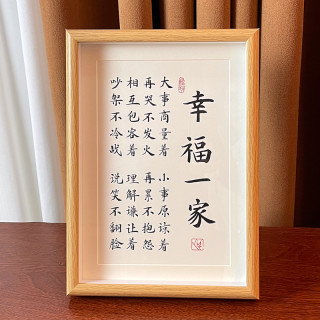 幸福一家
大事商量着 小事原谅着
再哭不发火 再累不抱怨
相互包容着 理解谦让着
吵架不冷战 说笑不翻脸